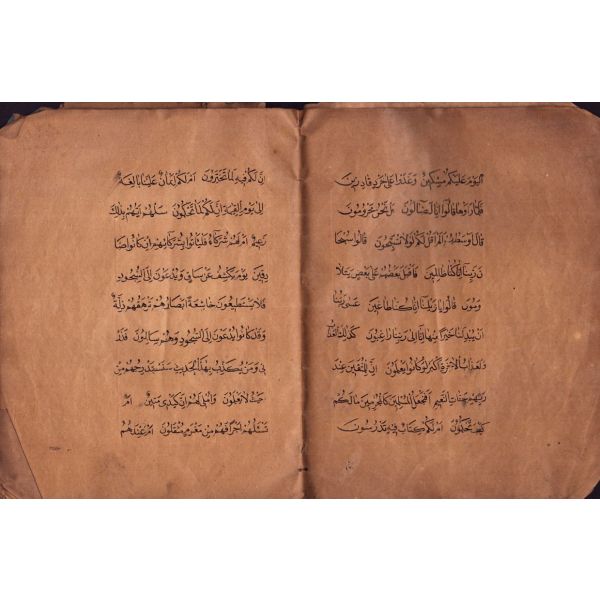 اليوم عليكم مسكين وغدوا على حرد قادرين
فلما رأوها قالوا إنا لضالون بل نحن محرومون
قال أوسطهم ألم أقل لكم لولا تسبحون قالوا سبحا
ن ربنا إنا كنا ظالمين فأقبل بعضهم على بعض يتلا
ومون قالوا يا ويلنا إنا كنا طاغين عسى ربنا
أن يبدلنا خيرا منها إنا إلى ربنا راغبون كذلك العذاب
ولعذاب الآخرة أكبر لو كانوا يعلمون إن للمتقين عند
ربهم جنات النعيم أفنجعل المسلمين كالمجرمين ما لكم
كيف تحكمون أم لكم كتاب فيه تدرسون
إن لكم فيه لما تخيرون أم لكم أيمان علينا بالغة
إلى يوم القيمة إن لكم لما تحكمون سلهم أيهم بذلك
زعيم أم لهم شركاء فليأتوا بشركائهم إن كانوا صا
دقين يوم يكشف عن ساق ويدعون إلى السجود
فلا يستطيعون خاشعة أبصارهم ترهقهم ذلة
وقد كانوا يدعون إلى السجود وهم سالمون فذر
ني ومن يكذب بهذا الحديث سنستدرجهم من
حيث لا يعلمون وأملي لهم إن كيدي متين أم
تسئلهم أجرا فهم من مغرم مثقلون أم عندهم